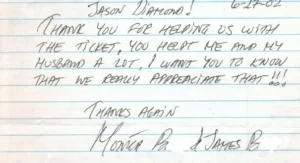 JASON DIAMOND! 6-27-02
THANK YOU FOR HELPING US WITH
THE TICKET, YOU HELPT ME AND MY
HUSBAND A LOT, I WANT YOU TO KNOW
THAT WE REALLY APPREACIATE THAT!!!
THANKS AGAIN
MONICA &JAMES